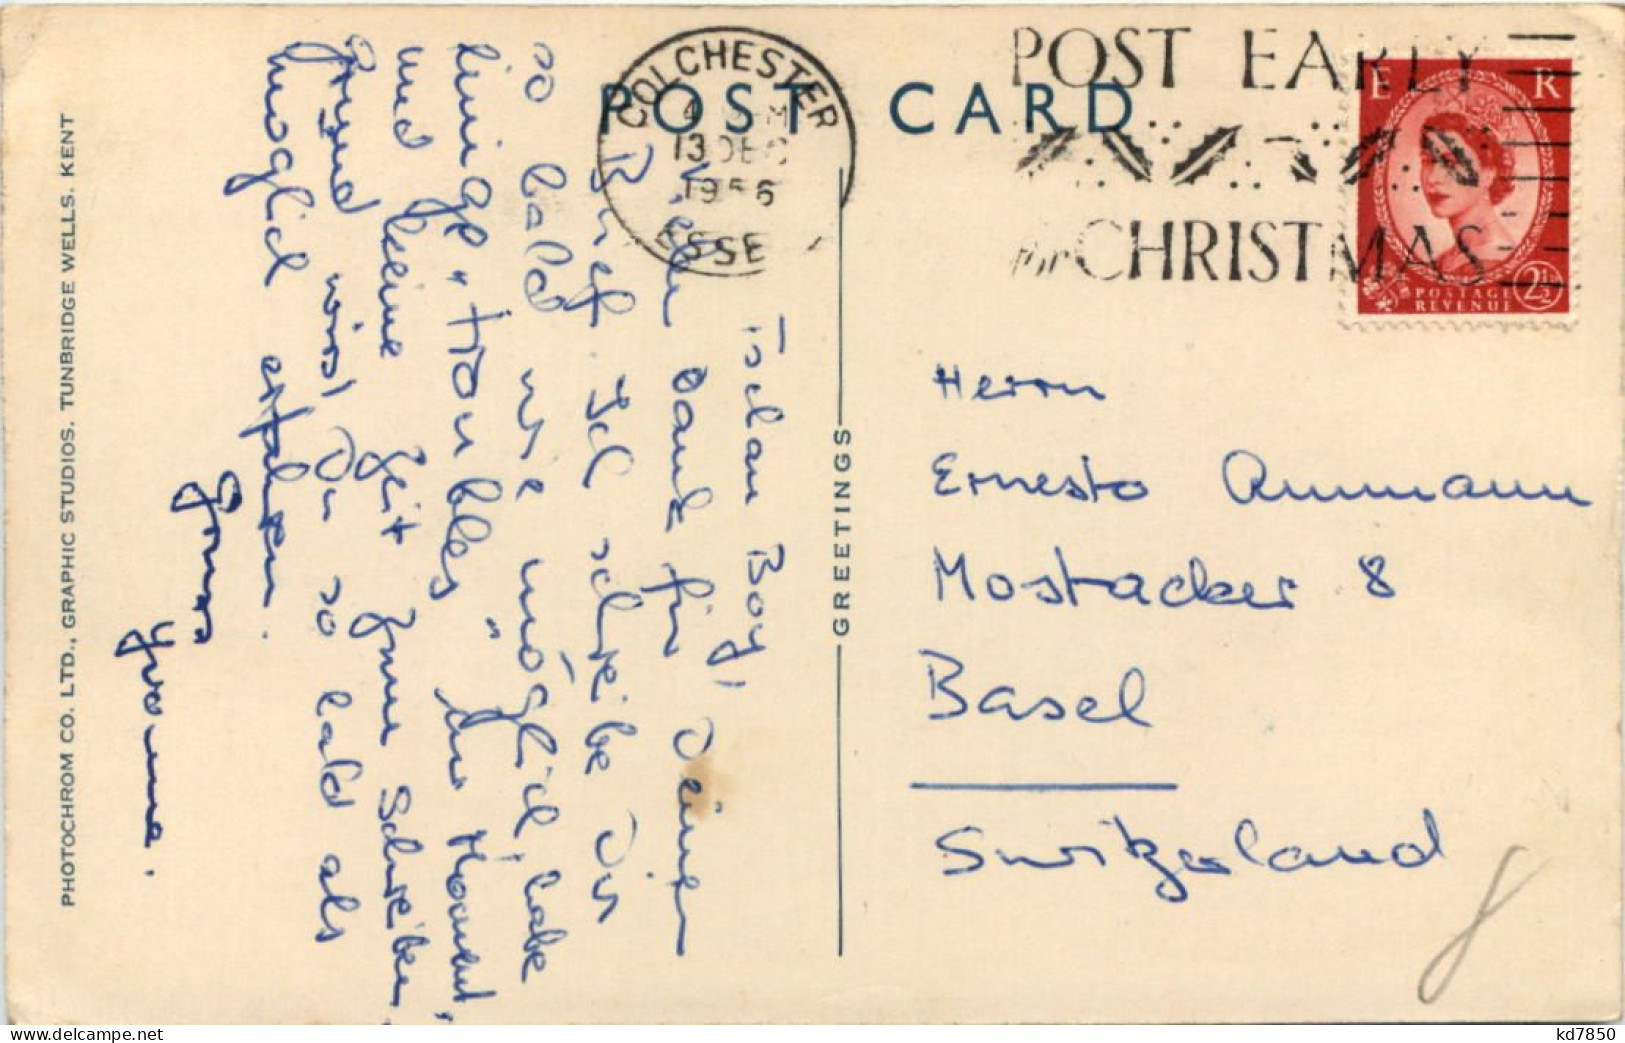 POST CARD
COLCHESTER
13 DEC
1956
ESSE
POST EARLY
for CHRISTMAS
E R
POSTAGE
REVENUE
2½
Tschau Boy,
Vielen Dank für Deinen
Brief. Ich schreibe Dir
so bald wie möglich, habe
einige "Troubles" im Moment,
und keine Zeit zum Schreiben,
Grund wirst Du so bald als
möglich erfahren.
Yvonne.
GREETINGS
Herrn
Ernesto Ammann
Mostacker 8
Basel
Switzerland
PHOTOCHROM CO. LTD., GRAPHIC STUDIOS, TUNBRIDGE WELLS, KENT
kd7850
https://www.delcampe.net